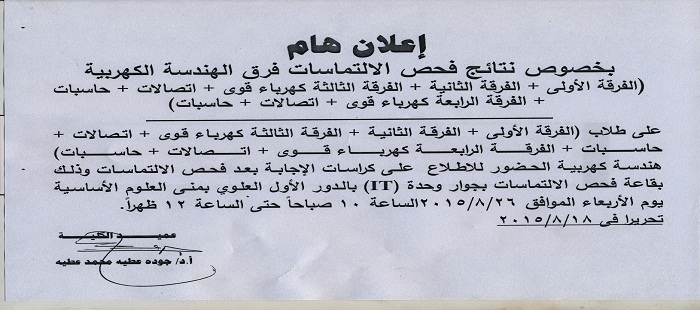 إعلان هام
بخصوص نتائج فحص الالتماسات فرق الهندسة الكهربية
(الفرقة الأولى + الفرقة الثانية + الفرقة الثالثة كهرباء قوى + اتصالات + حاسبات
+ الفرقة الرابعة كهرباء قوى + اتصالات + حاسبات)
على طلاب (الفرقة الأولى + الفرقة الثانية + الفرقة الثالثة كهرباء قوى + اتصالات +
حاسبات + الفرقة الرابعة كهرباء قوى + اتصالات + حاسبات)
هندسة كهربية الحضور للاطلاع على كراسات الإجابة بعد فحص الالتماسات وذلك
بقاعة فحص الالتماسات بجوار وحدة (IT) بالدور الأول العلوي بمنى العلوم الأساسية
يوم الأربعاء الموافق ٢٠١٥/٨/٢٦الساعة ١٠ صباحاً حتى الساعة ١٢ ظهراً.
تحريرا فى ٢٠١٥/٨/١٨
عميد الكلية
أ.د/ جوده عطيه محمد عطيه